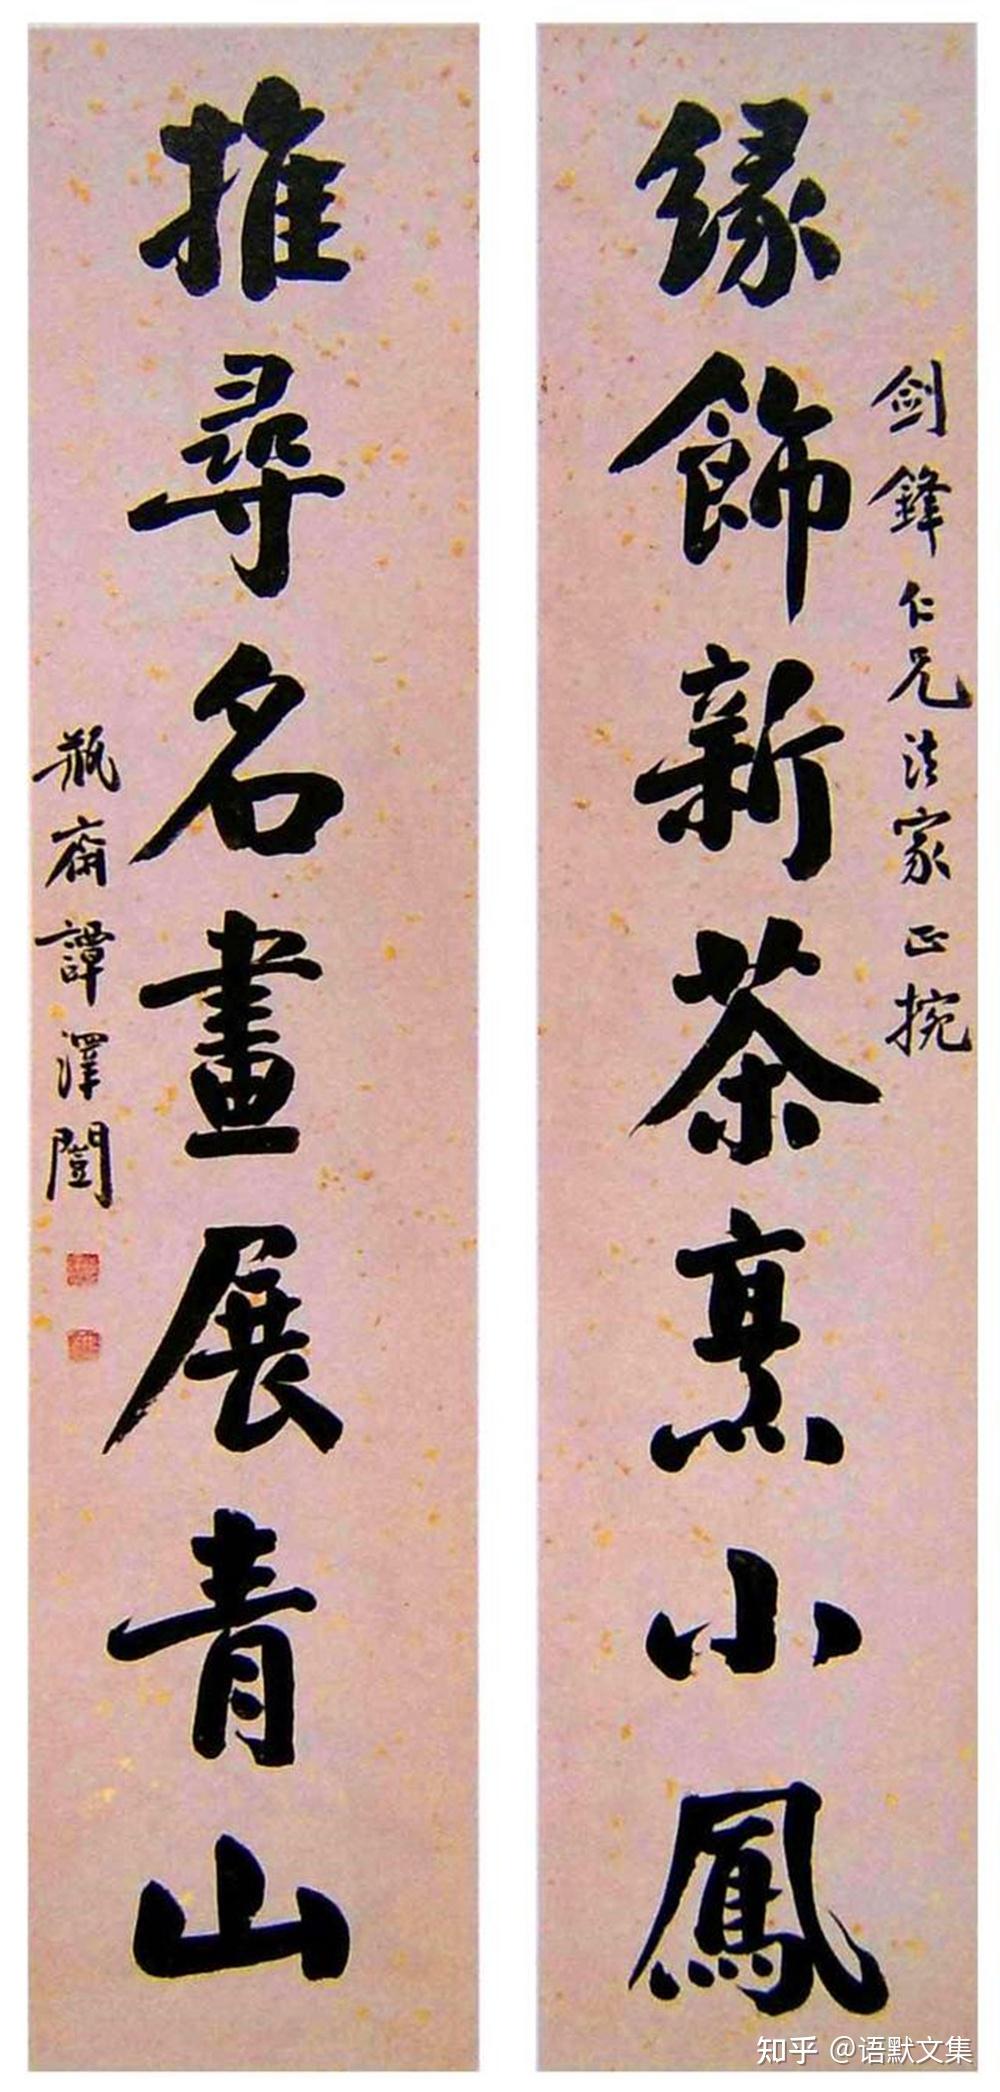 剑鋒仁兄法家正捥
緣飾新茶烹小鳳
推尋名畫展青山
瓶齋譚澤闓
知乎 @语默文集